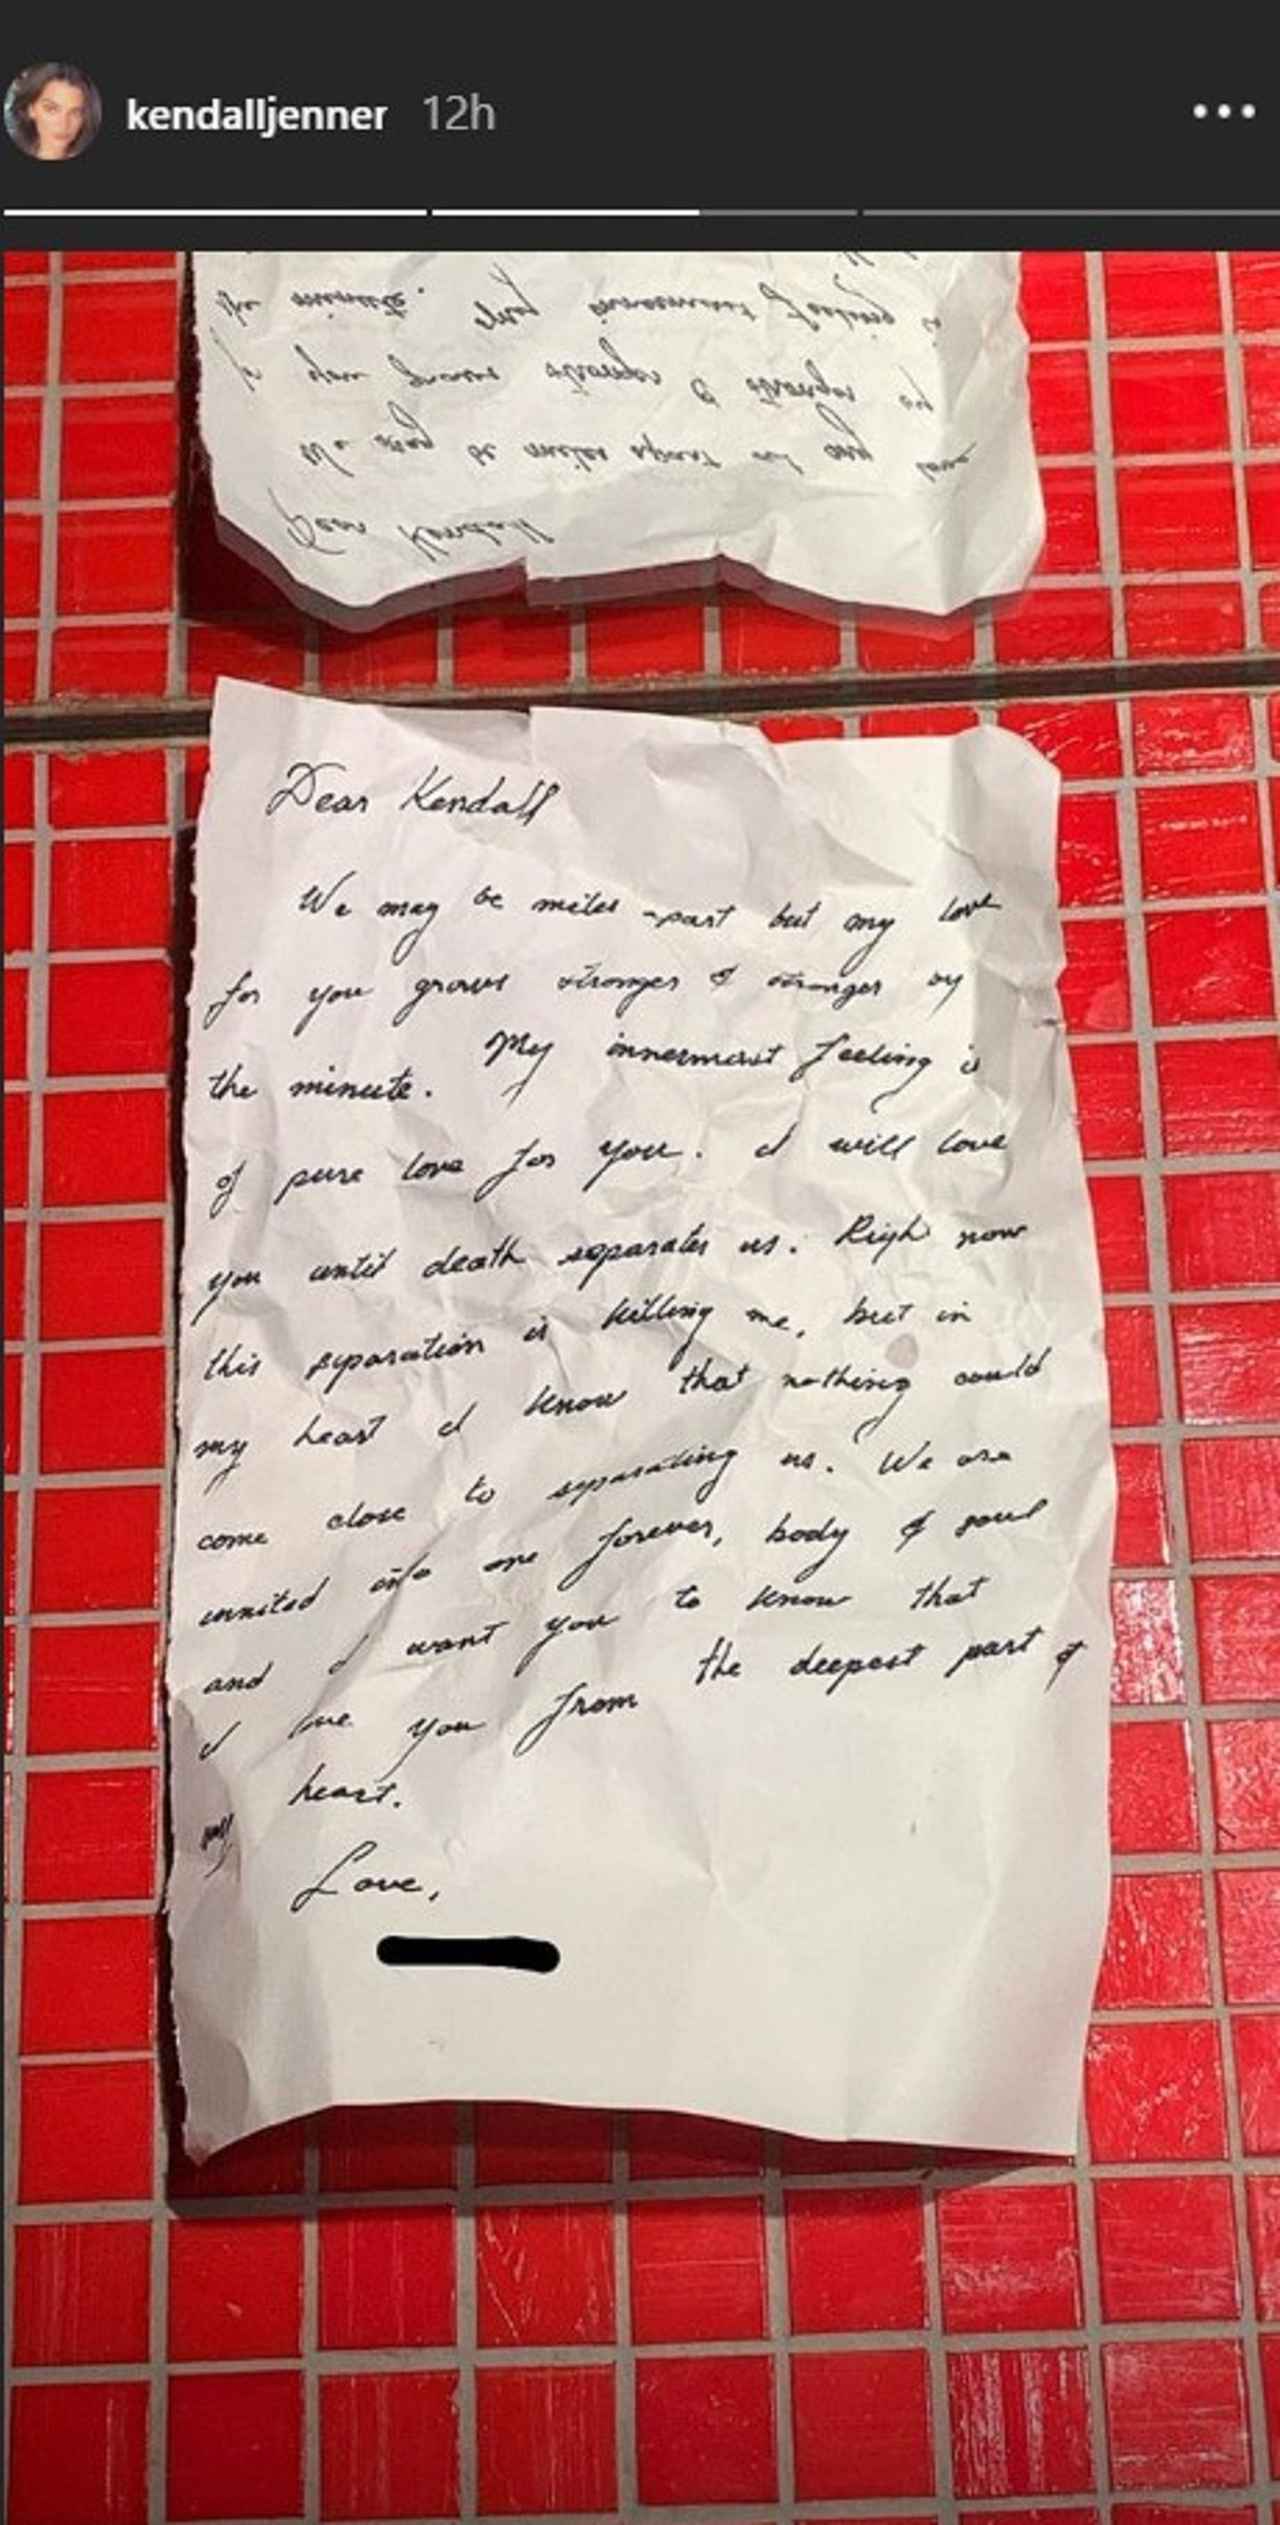 kendalljenner 12h
Dear Kendall
We may be miles apart but my love
for you grows stronger & stronger by
the minute. My innermost feeling is
of pure love for you. I will love
you until death separates us. Righ now
this separation is killing me, but in
my heart I know that nothing could
come close to separating us. We are
united into one forever, body & soul
and I want you to know that
I love you from the deepest part of
my heart.
Love,